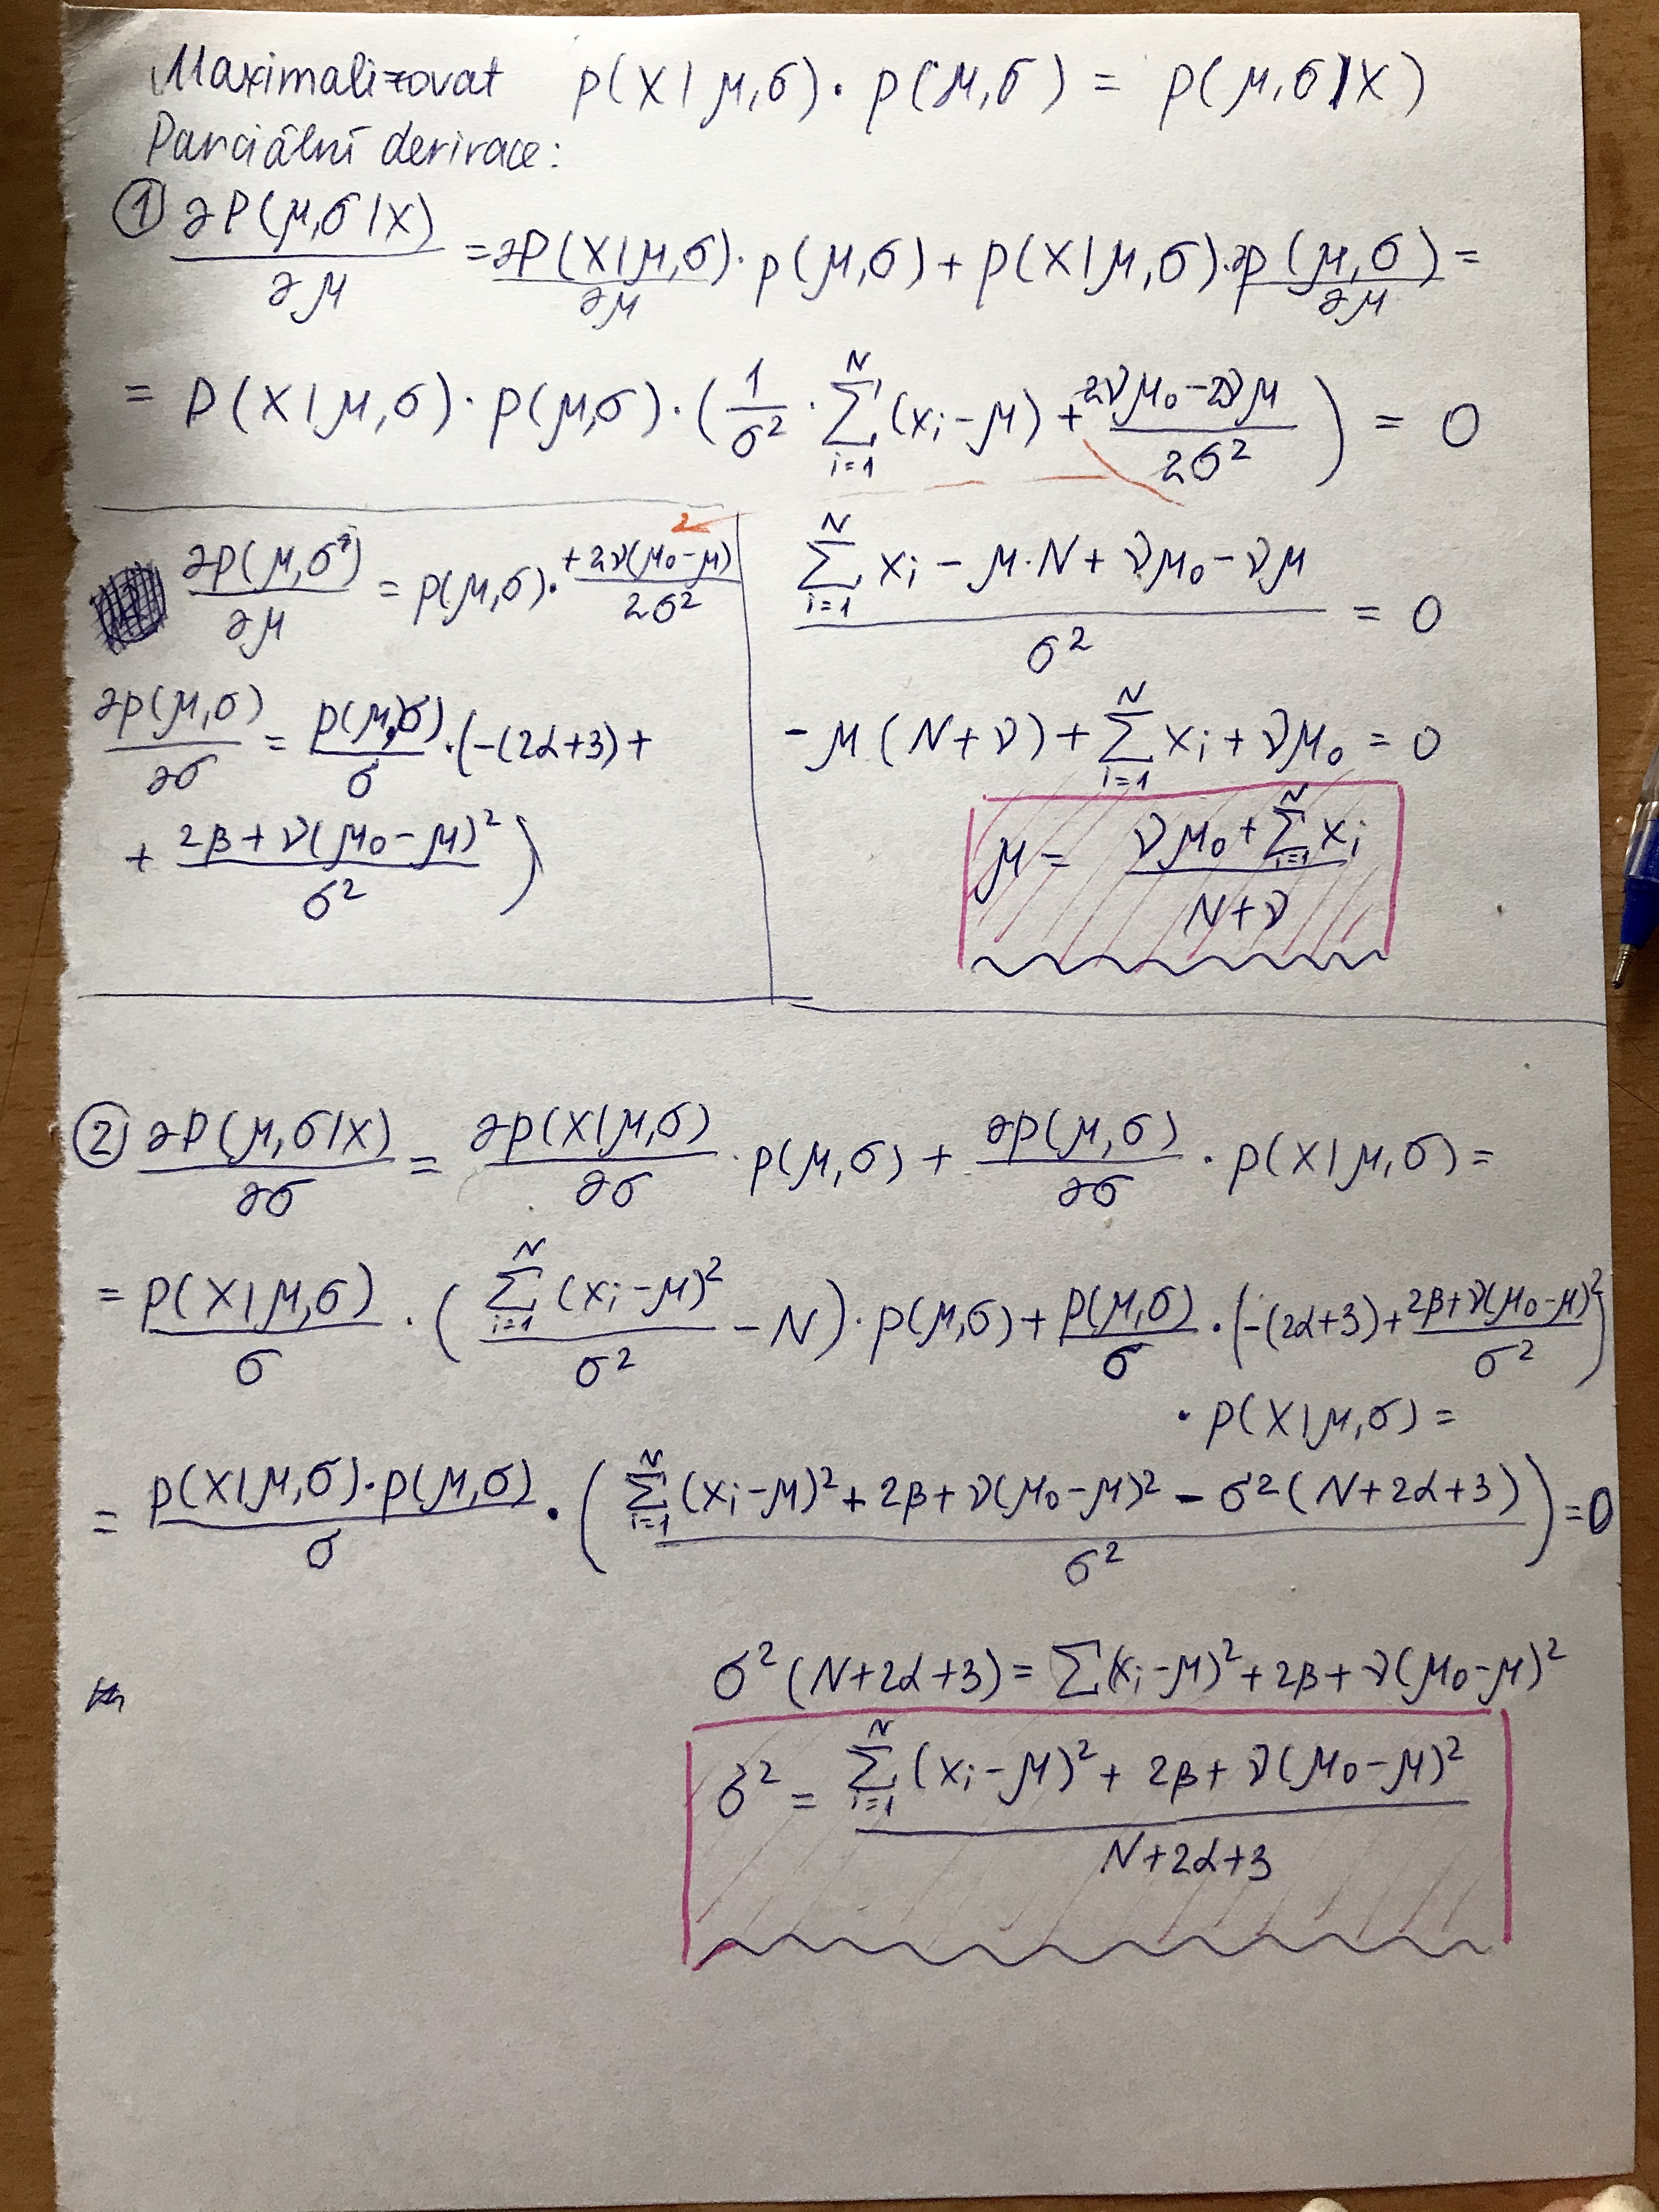 Maximalizovat p(X|μ,σ)·p(μ,σ) = p(μ,σ|X)
Parciální derivace:
① ∂P(μ,σ|X)/∂μ = ∂P(X|μ,σ)/∂μ · p(μ,σ) + p(X|μ,σ)·∂p(μ,σ)/∂μ =
= P(X|μ,σ)·p(μ,σ)·(1/σ² · ∑_{i=1}^{N} (x_i-μ) + (2νμ₀-2νμ)/2σ²) = 0
∂p(μ,σ)/∂μ = p(μ,σ)·(+2ν(μ₀-μ))/2σ²
∂p(μ,σ)/∂σ = p(μ,σ)/σ ·(-(2α+3)+
+ (2β+ν(μ₀-μ)²)/σ²)
(∑_{i=1}^{N} x_i - μ·N + νμ₀ - νμ)/σ² = 0
-μ(N+ν)+∑_{i=1}^{N} x_i + νμ₀ = 0
μ = (νμ₀+∑_{i=1}^{N} x_i)/(N+ν)
② ∂P(μ,σ|X)/∂σ = ∂p(X|μ,σ)/∂σ · p(μ,σ) + ∂p(μ,σ)/∂σ · p(X|μ,σ) =
= p(X|μ,σ)/σ · (∑_{i=1}^{N} (x_i-μ)²/σ² - N)· p(μ,σ) + p(μ,σ)/σ · (-(2α+3)+(2β+ν(μ₀-μ)²)/σ²)
· p(X|μ,σ) =
= p(X|μ,σ)·p(μ,σ)/σ · ((∑_{i=1}^{N} (x_i-μ)² + 2β+ν(μ₀-μ)² - σ²(N+2α+3))/σ²) = 0
σ²(N+2α+3) = ∑(x_i-μ)²+2β+ν(μ₀-μ)²
σ² = (∑_{i=1}^{N} (x_i-μ)² + 2β+ν(μ₀-μ)²)/(N+2α+3)